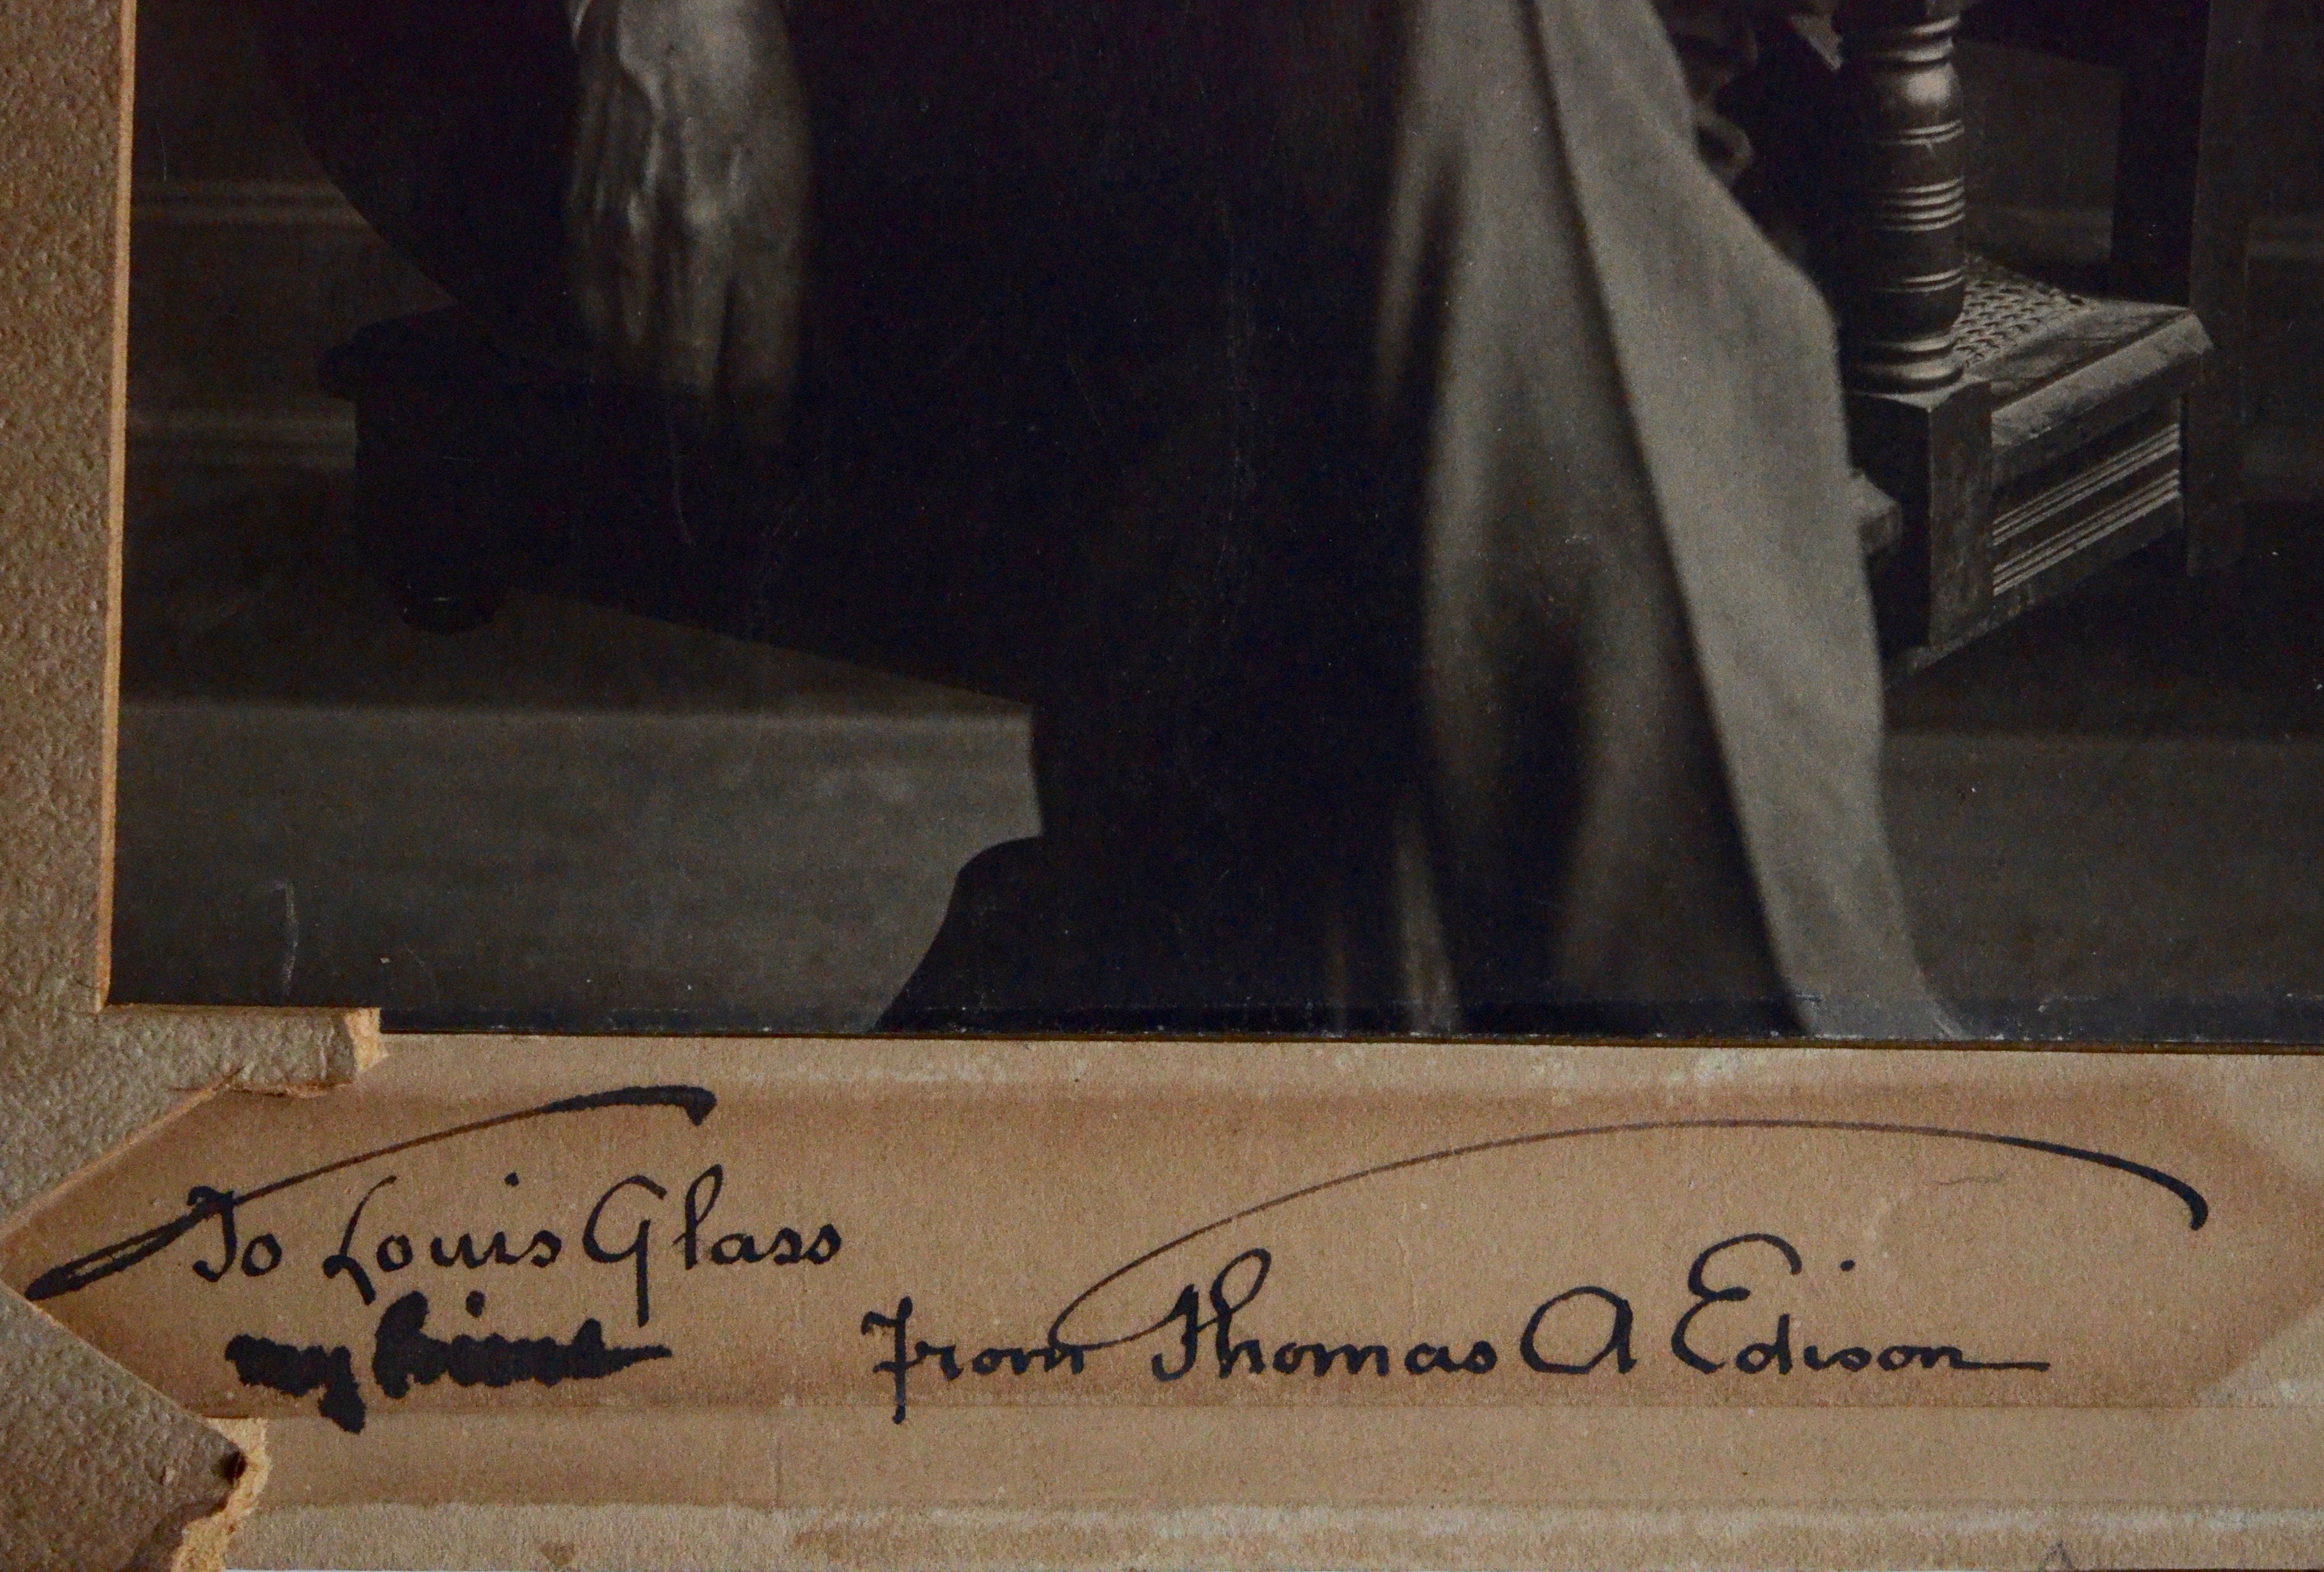 To Louis Glass
my friend
From Thomas A Edison